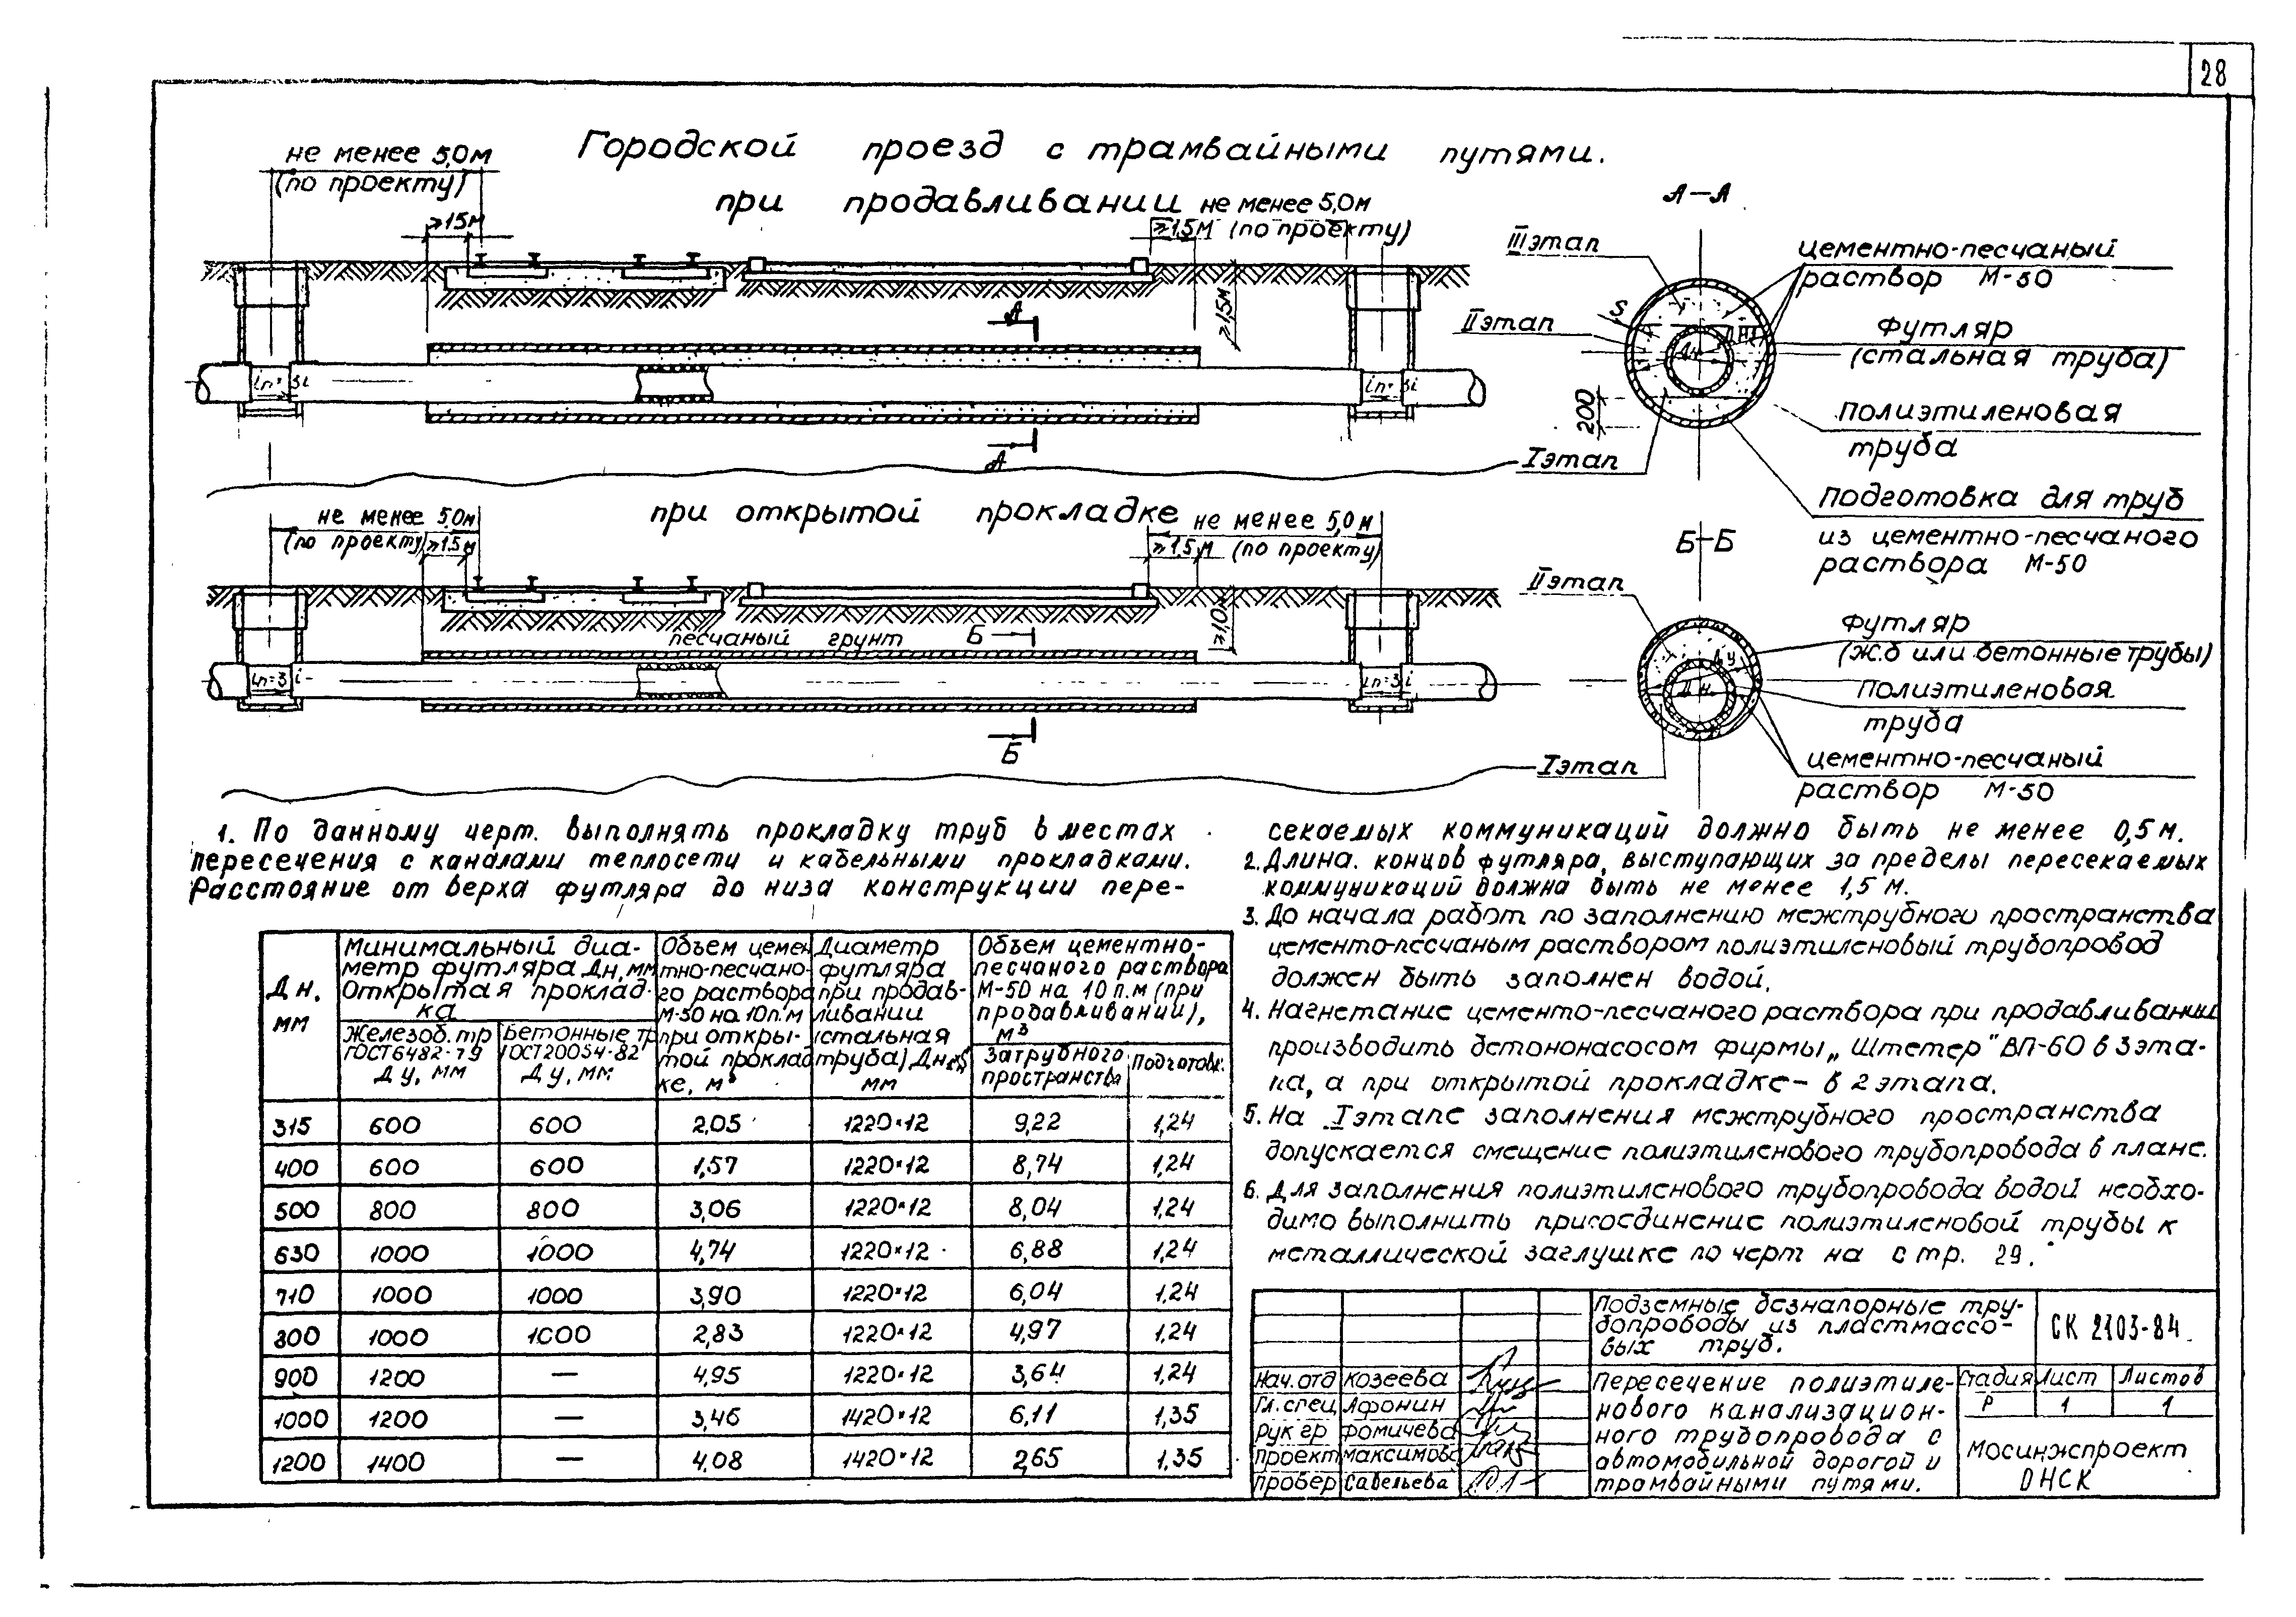 28
Городской проезд с трамвайными путями.
при продавливании
не менее 5,0м
(по проекту)
≥1,5м
не менее 5,0м
≥1,5м (по проекту)
≥1,5м
А
А
iп=3i
iп=3i
А-А
III этап
II этап
I этап
S
Дн
200
цементно-песчаный
раствор М-50
Футляр
(стальная труба)
полиэтиленовая
труба
Подготовка для труб
из цементно-песчаного
раствора М-50
при открытой прокладке
не менее 5,0м
(по проекту)
≥1,5м
не менее 5,0м
≥1,5м (по проекту)
≥1,0м
песчаный грунт
Б
Б
iп=3i
iп=3i
Б-Б
II этап
I этап
Ду
Дн
Футляр
(ж.б или бетонные трубы)
Полиэтиленовая
труба
цементно-песчаный
раствор М-50
1. По данному черт. выполнять прокладку труб в местах
пересечения с каналами теплосети и кабельными прокладками.
Расстояние от верха футляра до низа конструкции пере-
секаемых коммуникаций должно быть не менее 0,5м.
2. Длина концов футляра, выступающих за пределы пересекаемых
коммуникаций должна быть не менее 1,5м.
3. До начала работ по заполнению межтрубного пространства
цементо-песчаным раствором полиэтиленовый трубопровод
должен быть заполнен водой.
4. Нагнетание цементо-песчаного раствора при продавливании
производить бетононасосом фирмы „Штетер" ВП-60 в 3 эта-
па, а при открытой прокладке - в 2 этапа.
5. На I этапе заполнения межтрубного пространства
допускается смещение полиэтиленового трубопровода в плане.
6. Для заполнения полиэтиленового трубопровода водой необхо-
димо выполнить присоединение полиэтиленовой трубы к
металлической заглушке по черт на стр. 29.
Дн, мм
Минимальный диа-
метр футляра Дн, мм
Открытая проклад-
ка
Железоб. тр
ГОСТ 6482-79
Ду, мм
Бетонные тр
ГОСТ 20054-82
Ду, мм
Объем цемен
тно-песчано-
го раствора
М-50 на 10п.м
при откры-
той проклад
ке, м³
Диаметр
футляра
при продав-
ливании
(стальная
труба) Дн×S
мм
Объем цементно-
песчаного раствора
М-50 на 10п.м (при
продавливании),
м³
Затрубного
пространства
Подготовк.
315 600 600 2,05 1220×12 9,22 1,24
400 600 600 1,57 1220×12 8,74 1,24
500 800 800 3,06 1220×12 8,04 1,24
630 1000 1000 4,74 1220×12 6,88 1,24
710 1000 1000 3,90 1220×12 6,04 1,24
800 1000 1000 2,83 1220×12 4,97 1,24
900 1200 — 4,95 1220×12 3,64 1,24
1000 1200 — 3,46 1420×12 6,11 1,35
1200 1400 — 4,08 1420×12 2,65 1,35
Подземные безнапорные тру-
бопроводы из пластмассо-
вых труб.
СК 2103-84
Нач. отд Козеева
Гл. спец Афонин
Рук гр Фомичева
Проект Максимова
Провер Савельева
Пересечение полиэтиле-
нового канализацион-
ного трубопровода с
автомобильной дорогой и
трамвайными путями.
Стадия Лист Листов
Р 1 1
Мосинжпроект
ОНСК